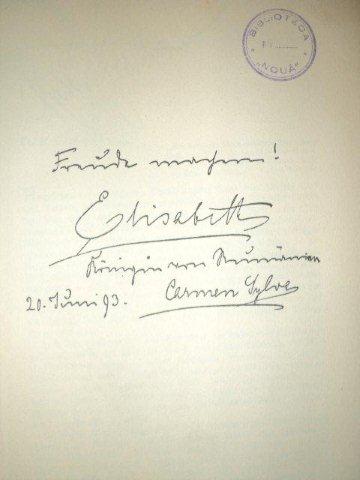 BIBLIOTECA
"NOUĂ"
Freude machen!
Elisabeth
Königin von Rumänien
20. Juni 93.
Carmen Sylva